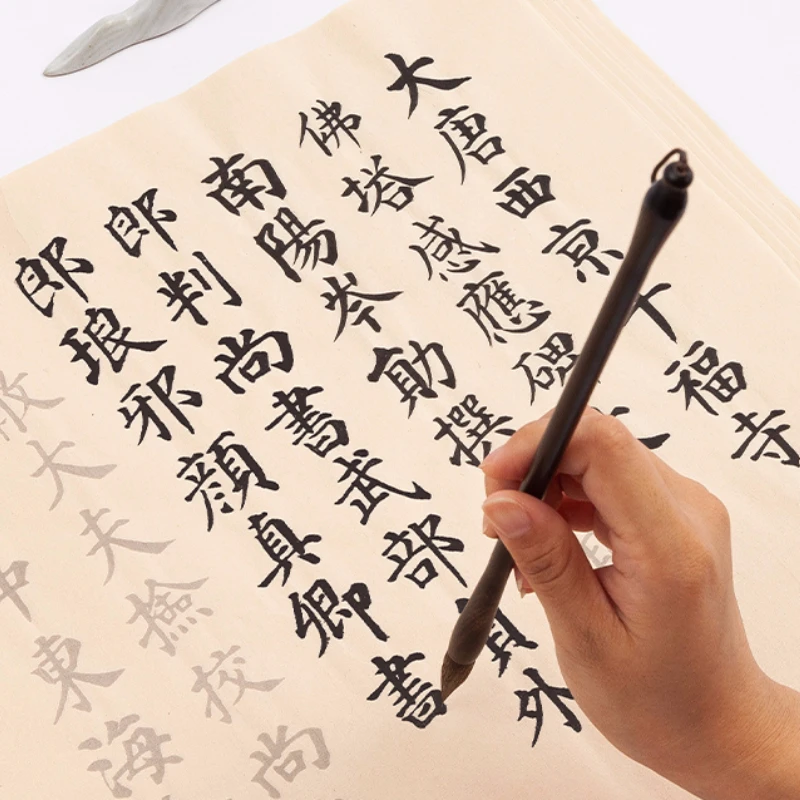 大唐西京千福寺
佛塔感應碑
南陽岑勛撰
郎判尚書武部員外
郎琅邪顏真卿書
大夫撿校尚
中東海